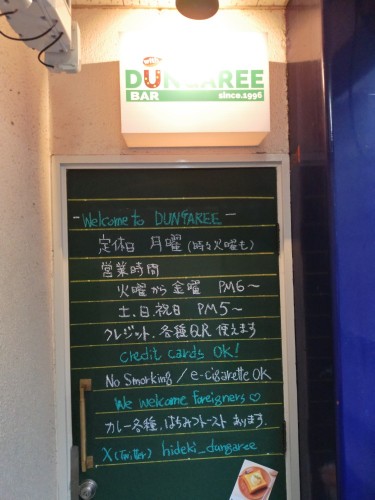 DUNGAREE
BAR since.1996
-Welcome to DUNGAREE-
定休日 月曜(時々火曜も)
営業時間
火曜から金曜 PM6〜
土、日、祝日 PM5〜
クレジット、各種QR使えます
credit cards OK!
No Smorking / e-cigarette OK
We welcome foreigners♡
カレー各種、はちみつトースト あります.
X(Twitter) hideki_dungaree